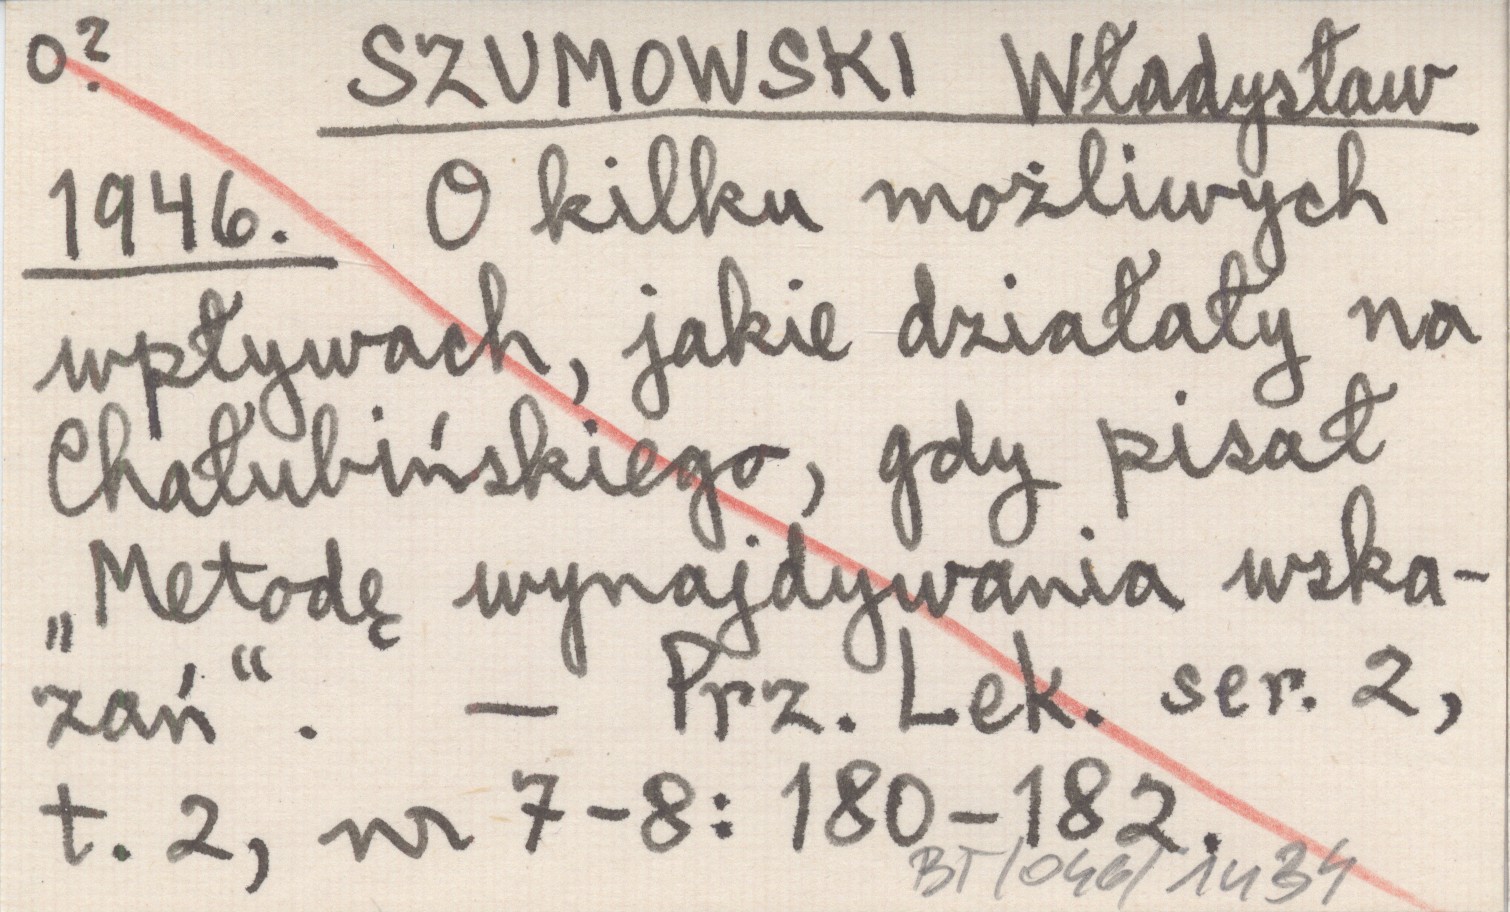 o? SZUMOWSKI Władysław
1946. O kilku możliwych
wpływach, jakie działały na
Chałubińskiego, gdy pisał
„Metodę wynajdywania wska-
zań“. — Prz. Lek. ser. 2,
t. 2, nr 7-8: 180-182.
BT/046/1434